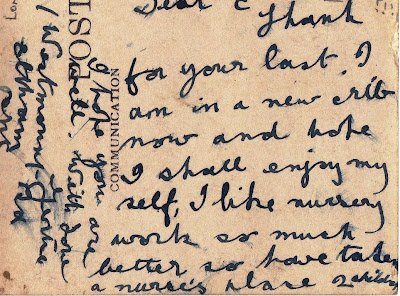 Dear C Thank
for your last. I
am in a new crib
now and hope
I shall enjoy my
self, I like nursery
work so much
better so have taken
a nurse's place 2
POST
COMMUNICATION
I hope you are
well. with love
Westmount
Rd